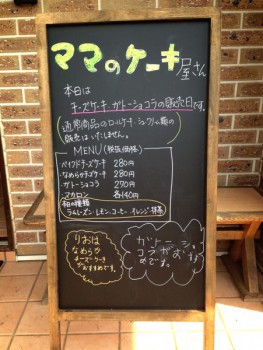 ママのケーキ屋さん
本日は
チーズケーキ、ガトーショコラの販売日です。
通常商品のロールケーキ、シュークリーム類の
販売は いたしません。
MENU (税抜価格)
ベイクドチーズケーキ 280円
なめらかチーズケーキ 280円
ガトーショコラ 270円
マカロン 各140円
ラムレーズン・レモン、コーヒー
りおは
なめらか
チーズケーキ
がおすすめです。
ガトーショ
コラがおすす
めです。